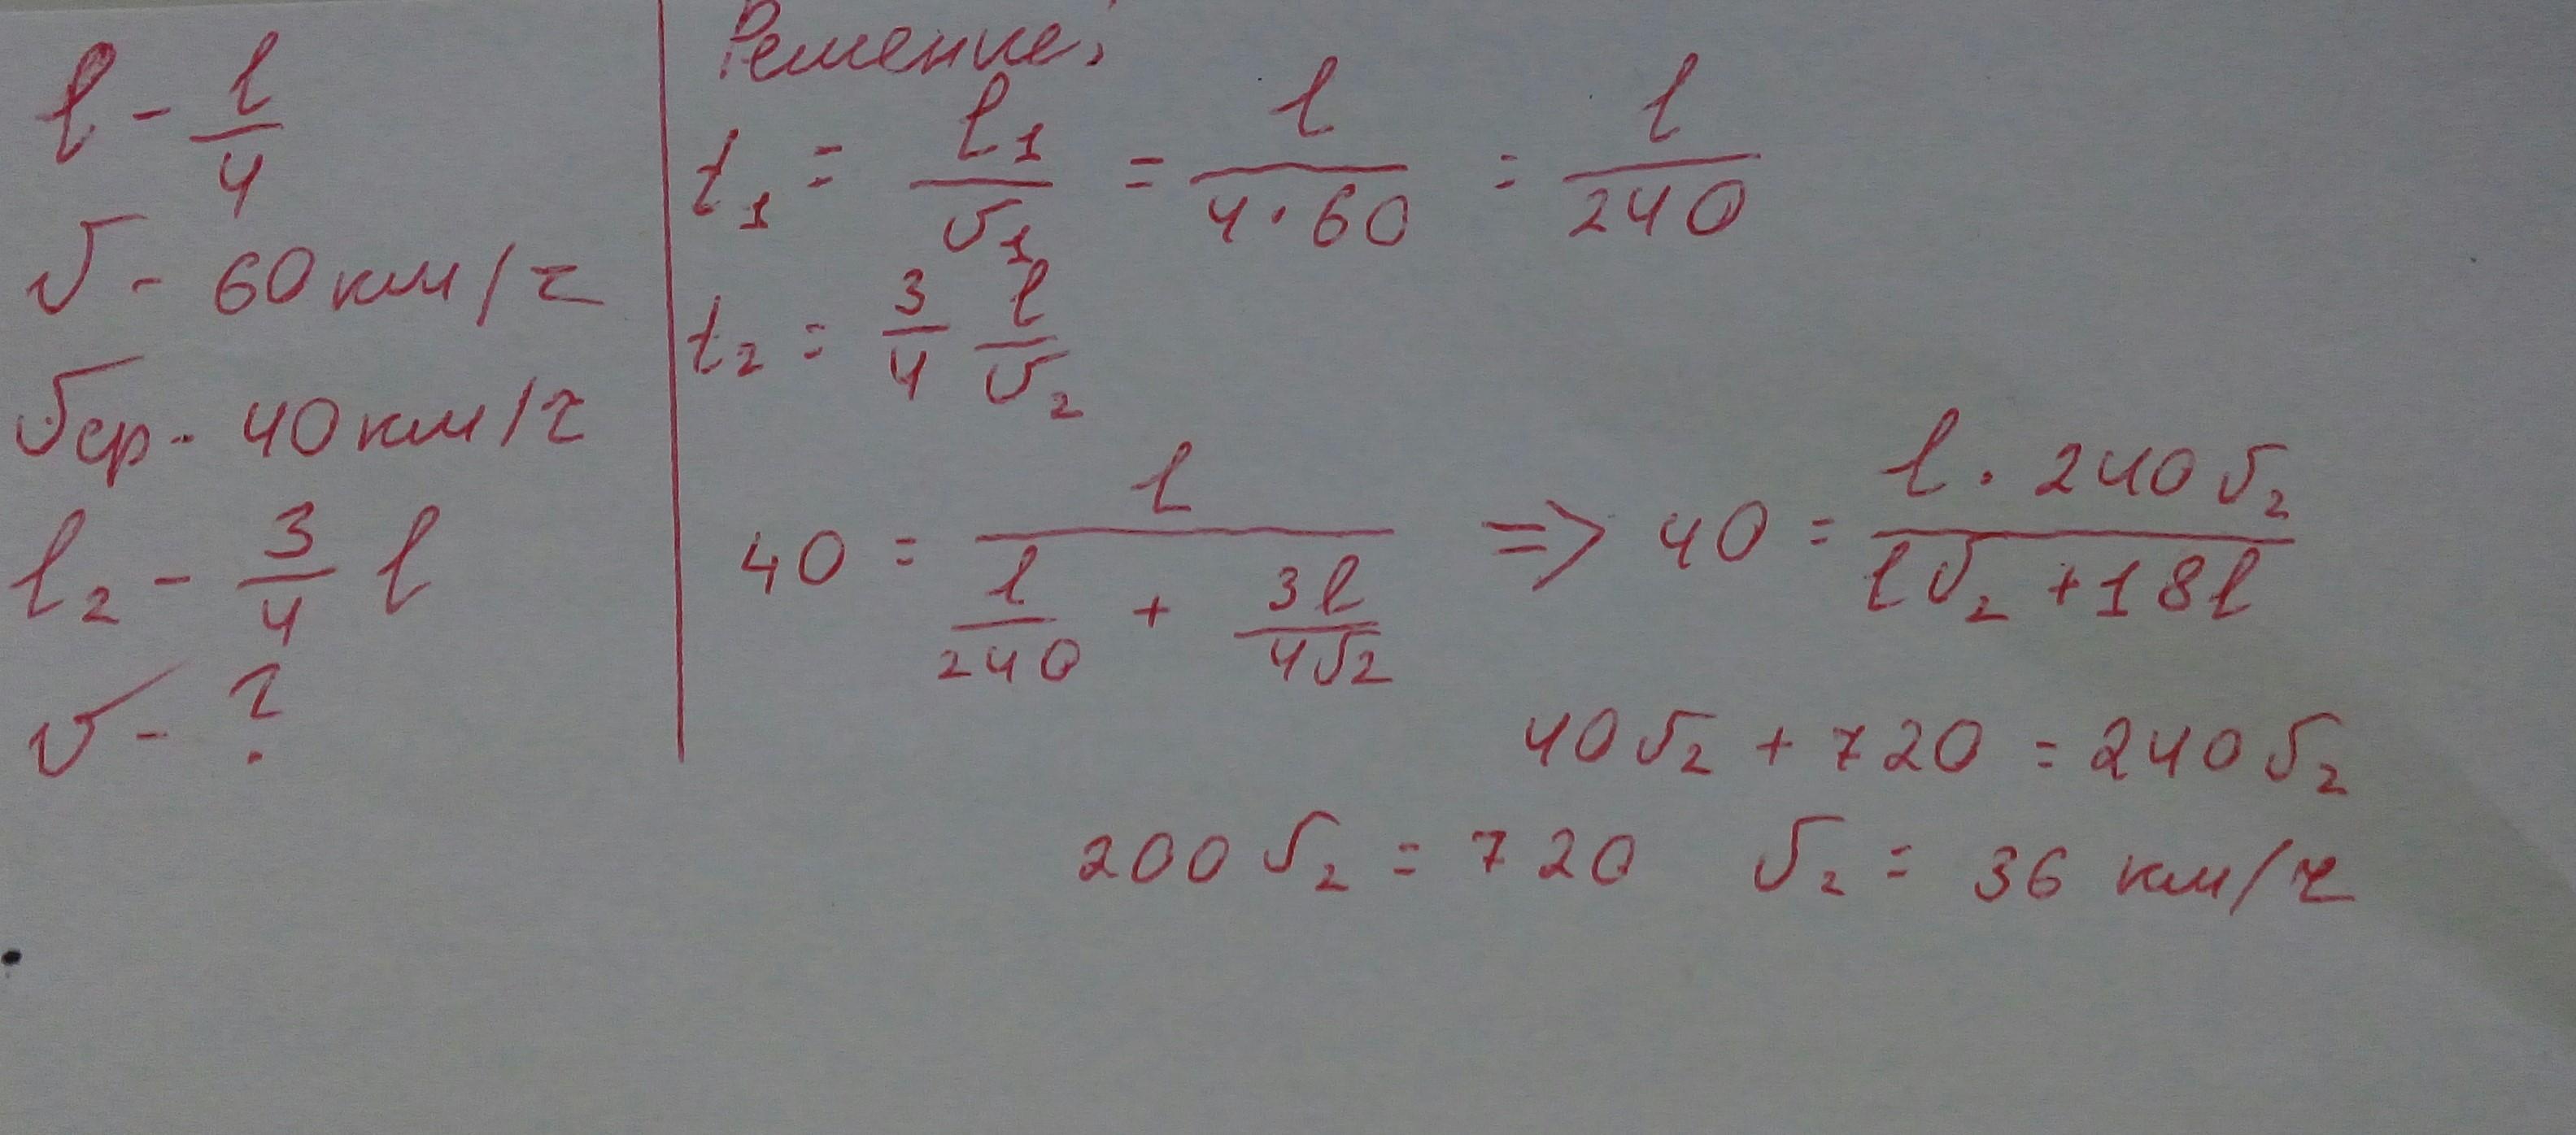 l - l/4
υ - 60 км/ч
υср - 40 км/ч
l₂ - 3/4 l
υ - ?
Решение:
t₁ = l₁/υ₁ = l/(4·60) = l/240
t₂ = 3/4 l/υ₂
40 = l/(l/240 + 3l/(4υ₂)) => 40 = (l · 240υ₂)/(lυ₂ + 18l)
40υ₂ + 720 = 240υ₂
200υ₂ = 720 υ₂ = 36 км/ч